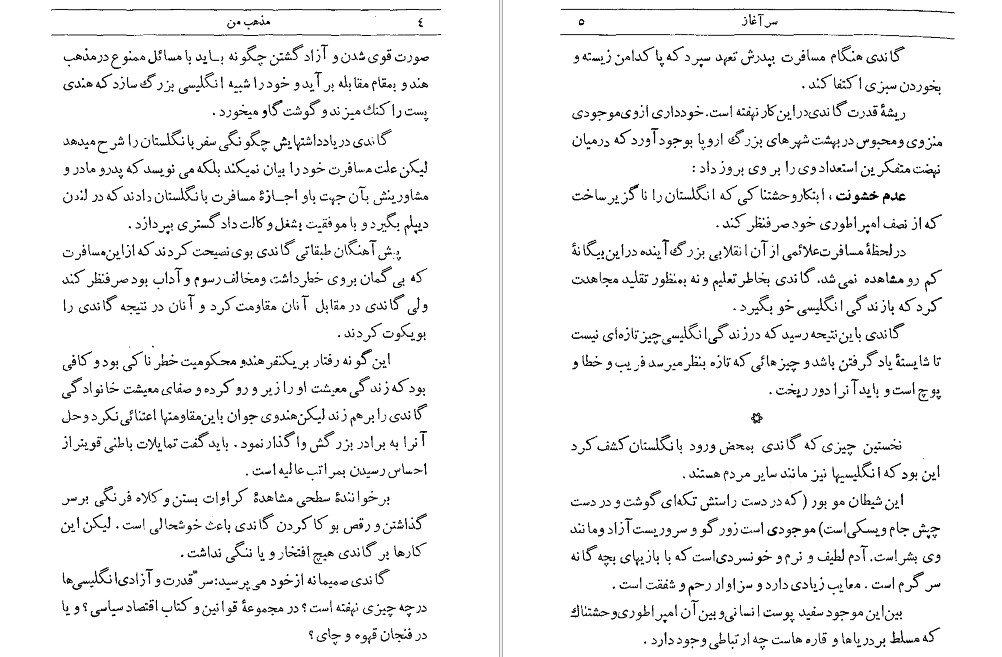 مذهب من ٤
صورت قوی شدن و آزاد گشتن چگونه بـاید با مسائل ممنوع در مذهب
هندو بمقام مقابله بر آید و خود را شبیه انگلیسی بزرگ سازد که هندی
پست را کتك میزند و گوشت گاو میخورد.
گاندی در یادداشتهایش چگونگی سفر بانگلستان را شرح میدهد
لیکن علت مسافرت خود را بیان نمیکند بلکه می نویسد که پدر و مادر و
مشاورینش بآن جهت باو اجـازۀ مسافرت بانگلستان دادند که در لندن
دیپلم بگیرد و با موفقیت بشغل وکالت دادگستری بپردازد .
پیش آهنگان طبقاتی گاندی بوی نصیحت کردند که از این مسافرت
که بی گمان بروی خطر داشت و مخالف رسوم و آداب بود صرفنظر کند
ولی گاندی در مقابل آنان مقاومت کرد و آنان در نتیجه گاندی را
بویکوت کردند .
این گونه رفتار بر یکنفر هندو محکومیت خطر ناکی بود و کافی
بود که زندگی معیشت او را زیر و رو کرده و صفای معیشت خانوادگی
گاندی را بر هم زند لیکن هندوی جوان باین مقاومتها اعتنائی نکرد و حل
آنرا به برادر بزرگش واگذار نمود . باید گفت تمایلات باطنی قویتر از
احساس رسیدن بمراتب عالیه است .
بر خوانندۀ سطحی مشاهدۀ کراوات بستن و کلاه فرنگی بر سر
گذاشتن و رقص بو کا کردن گاندی باعث خوشحالی است . لیکن این
کارها بر گاندی هیچ افتخار و یا ننگی نداشت .
گاندی صمیمانه از خود می پرسید: سر قدرت و آزادی انگلیسی‌ها
در چه چیزی نهفته است؟ در مجموعۀ قوانین و کتاب اقتصاد سیاسی؟ و یا
در فنجان قهوه و چای؟
سر آغاز ٥
گاندی هنگام مسافرت بپدرش تعهد سپرد که پاکدامن زیسته و
بخوردن سبزی اکتفا کند .
ریشۀ قدرت گاندی در این کار نهفته است. خودداری از وی موجودی
منزوی و محبوس در بهشت شهرهای بزرگ اروپا بوجود آورد که در میان
نهضت متفکرین استعداد وی را بر وی بروز داد :
عدم خشونت ، ابتکار وحشتناکی که انگلستان را ناگزیر ساخت
که از نصف امپراطوری خود صرفنظر کند .
در لحظۀ مسافرت علائمی از آن انقلابی بزرگ آینده در این بیگانۀ
کم رو مشاهده نمی شد. گاندی بخاطر تعلیم و نه بمنظور تقلید مجاهدت
کرد که با زندگی انگلیسی خو بگیرد .
گاندی باین نتیجه رسید که در زندگی انگلیسی چیز تازه‌ای نیست
تا شایستۀ یاد گرفتن باشد و چیزهائی که تازه بنظر میرسد فریب و خطا و
پوچ است و باید آنرا دور ریخت .
نخستین چیزی که گاندی بمحض ورود بانگلستان کشف کرد
این بود که انگلیسیها نیز مانند سایر مردم هستند .
این شیطان مو بور (که در دست راستش تکه‌ای گوشت و در دست
چپش جام ویسکی است) موجودی است زور گو و سروریست آزاد و مانند
وی بشر است. آدم لطیف و نرم و خونسردی است که با بازیهای بچه گانه
سر گرم است . معایب زیادی دارد و سزاوار رحم و شفقت است .
بین این موجود سفید پوست انسانی و بین آن امپراطوری وحشتناك
که مسلط بر دریاها و قاره هاست چه ارتباطی وجود دارد .